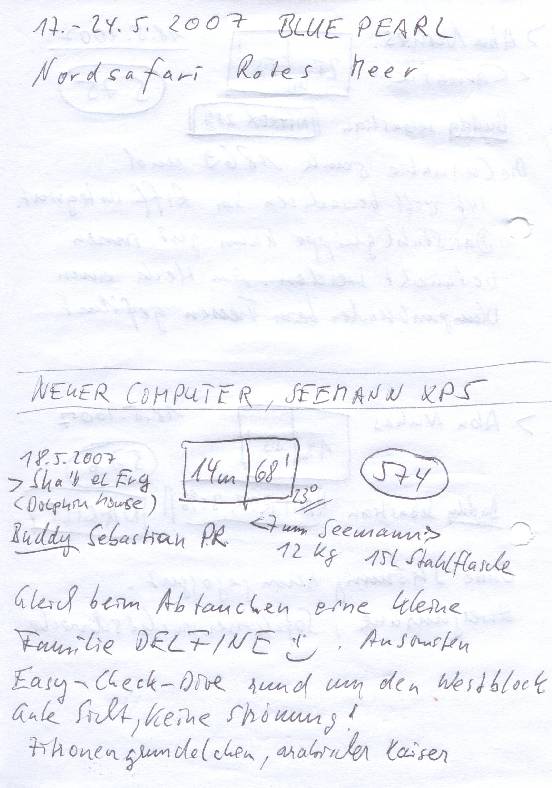 17.-24.5.2007 BLUE PEARL
Nordsafari Rotes Meer
NEUER COMPUTER, SEEMANN XP5
18.5.2007
> Sha'b el Erg
(Dolphin house)
14m 68' 23°
574
Buddy Sebastian P.R. <7mm Seemann>
12 kg 15L Stahlflasche
Gleich beim Abtauchen eine kleine
Familie DELFINE . Ansonsten
Easy-Check-Dive rund um den Westblock
Gute Sicht, keine Strömung!
Zitronengrundelchen, arabischer Kaiser